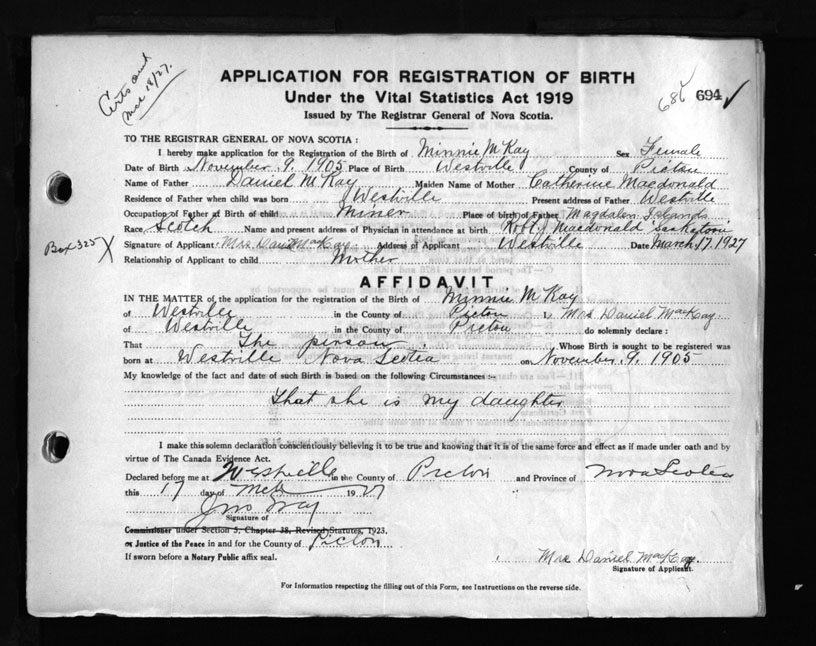 Certs and
Mar 18/27.
APPLICATION FOR REGISTRATION OF BIRTH
Under the Vital Statistics Act 1919
Issued by The Registrar General of Nova Scotia.
686 694 ✓
TO THE REGISTRAR GENERAL OF NOVA SCOTIA :
I hereby make application for the Registration of the Birth of Minnie McKay Sex Female
Date of Birth November 9, 1905 Place of Birth Westville County of Pictou
Name of Father Daniel McKay Maiden Name of Mother Catherine Macdonald
Residence of Father when child was born Westville Present address of Father Westville
Occupation of Father at Birth of child Miner Place of birth of Father Magdalen Islands
Race Scotch Name and present address of Physician in attendance at birth Robt. Macdonald Saskatoon
Box 325 X Signature of Applicant Mrs Daniel MacKay Address of Applicant Westville Date March 17, 1927
Relationship of Applicant to child Mother
AFFIDAVIT
IN THE MATTER of the application for the registration of the Birth of Minnie McKay
of Westville in the County of Pictou I, Mrs Daniel MacKay
of Westville in the County of Pictou do solemnly declare :
That The person Whose Birth is sought to be registered was
born at Westville Nova Scotia on November 9, 1905
My knowledge of the fact and date of such Birth is based on the following Circumstances :-
That she is my daughter
I make this solemn declaration conscientiously believing it to be true and knowing that it is of the same force and effect as if made under oath and by
virtue of The Canada Evidence Act.
Declared before me at Westville in the County of Pictou and Province of Nova Scotia
this 17 day of Mch 1927
Jno
Signature of
Commissioner under Section 5, Chapter 38, Revised Statutes, 1923,
or Justice of the Peace in and for the County of Pictou
If sworn before a Notary Public affix seal.
Mrs Daniel MacKay.
Signature of Applicant.
For Information respecting the filling out of this Form, see Instructions on the reverse side.